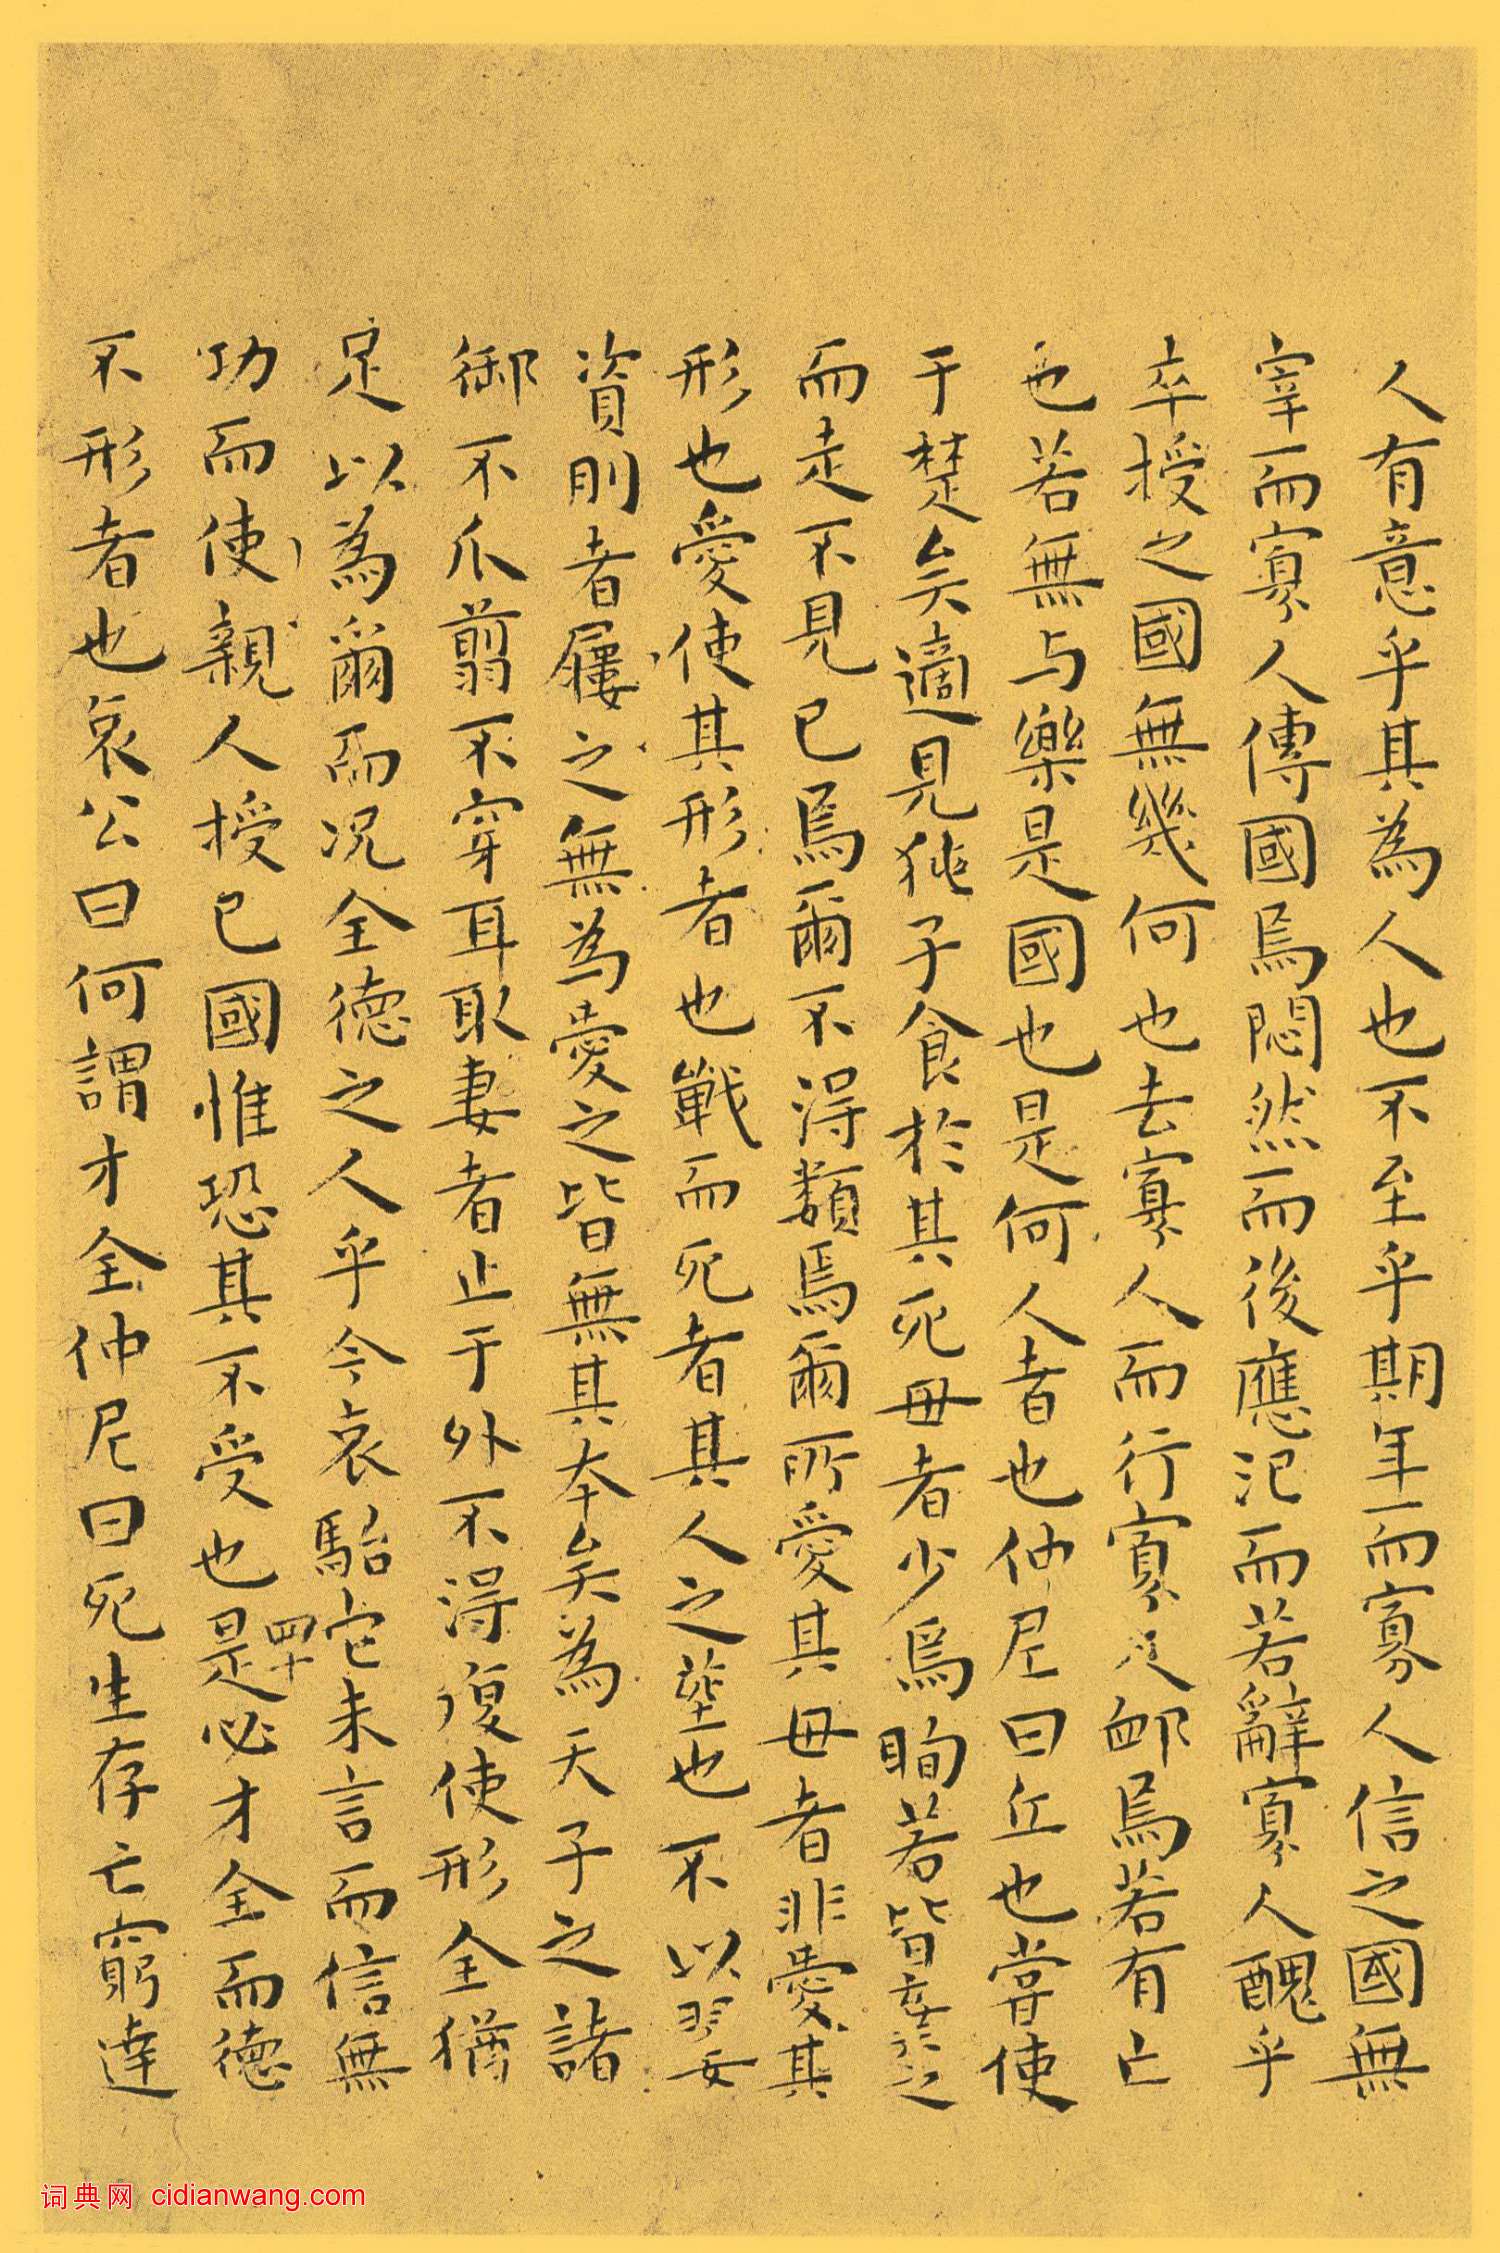 人有意乎其為人也不至乎期年而寡人信之國無
宰而寡人傳國焉悶然而後應氾而若辭寡人醜乎
卒授之國無幾何也去寡人而行寡人卹焉若有亡
也若無与樂是國也是何人者也仲尼曰丘也嘗使
于楚矣適見㹠子食於其死母者少焉眴若皆弃之
而走不見已焉爾不得類焉爾所愛其母者非愛其
形也愛使其形者也戰而死者其人之塟也不以翣
資刖者屨之無為愛之皆無其本矣為天子之諸
御不爪翦不穿耳取妻者止于外不得復使形全猶
足以為爾而况全德之人乎今哀駘它未言而信無
功而使親人授已國惟恐其不受也是必才全而德
四十
不形者也哀公曰何謂才全仲尼曰死生存亡窮達
词典网 cidianwang.com